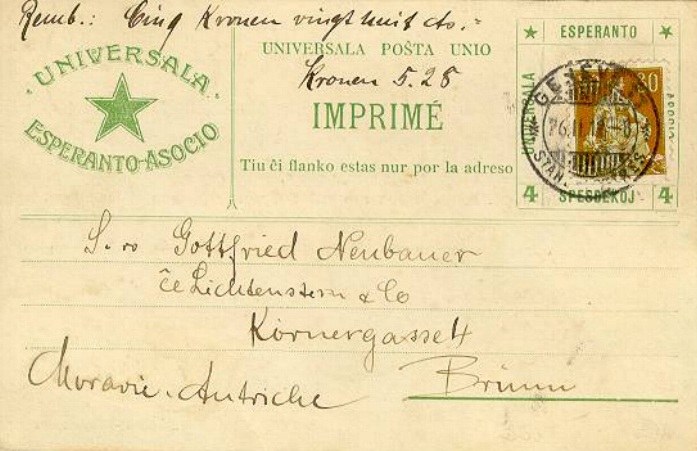 Remb.: Cinq Kronen vingt huit cts.=
UNIVERSALA
ESPERANTO-ASOCIO
UNIVERSALA POŜTA UNIO
Kronen 5.28
IMPRIMÉ
Tiu ĉi flanko estas nur por la adreso
ESPERANTO
UNIVERSALA
30
GENÈVE
4 SPESDEKOJ 4
S-ro Gottfried Neubauer
ĉe Lichtenstern & Co
Körnergasse 4
Moravie-Autriche Brünn